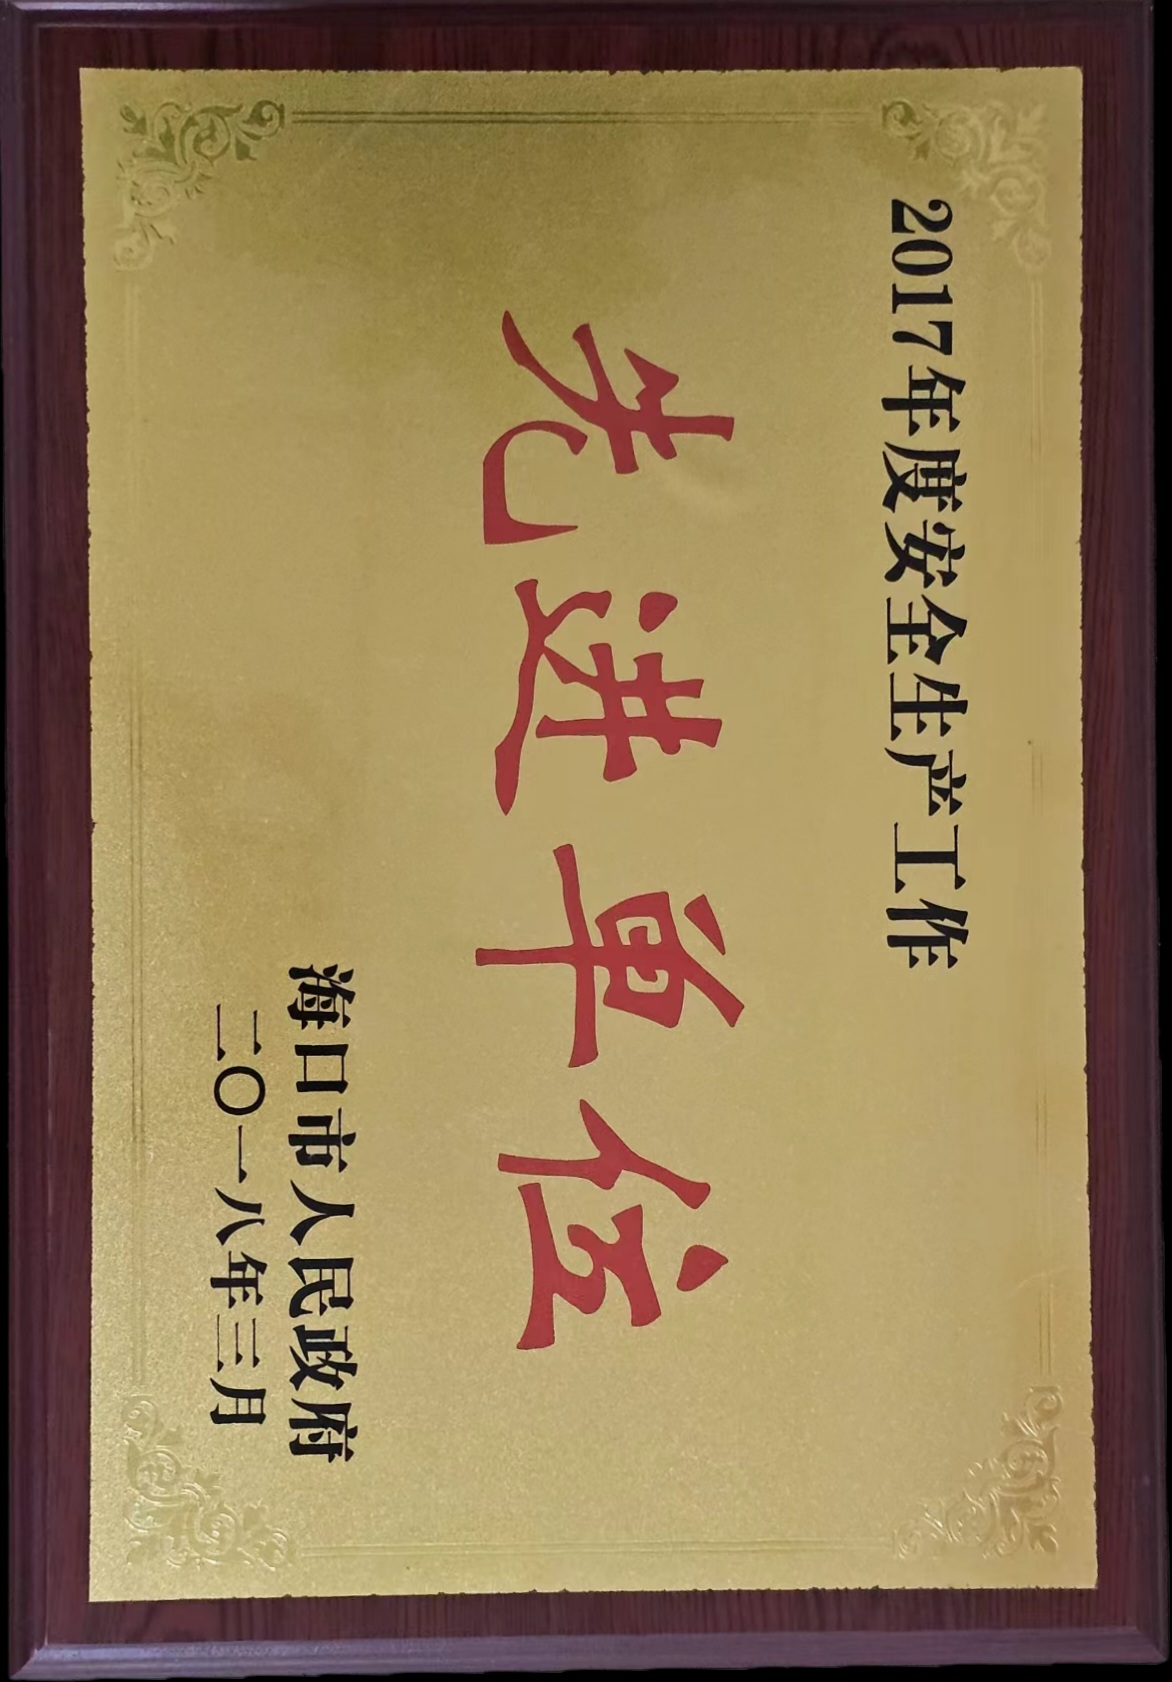 2017年度安全生产工作
先进单位
海口市人民政府
二〇一八年三月